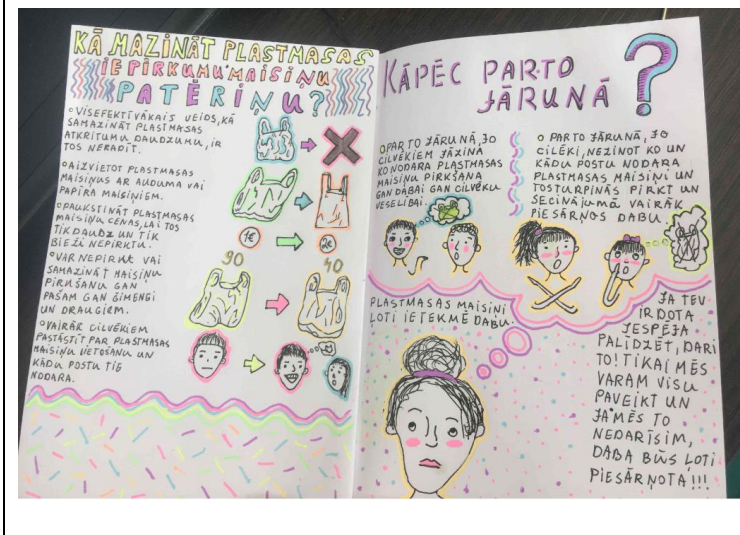 KĀ MAZINĀT PLASTMASAS
IEPIRKUMU MAISIŅU
PATĒRIŅU?
○VISEFEKTIVĀKAIS VEIDS, KĀ
SAMAZINĀT PLASTMASAS
ATKRITUMU DAUDZUMU, IR
TOS NERADĪT.
○AIZVIETOT PLASTMASAS
MAISIŅUS AR AUDUMA VAI
PAPĪRA MAISIŅIEM.
○PAUKSTINĀT PLASTMASAS
MAISIŅU CENAS, LAI TOS
TIK DAUDZ UN TIK
BIEŽI NEPIRKTU.
1€
2€
○VAR NEPIRKT VAI
SAMAZINĀT MAISIŅU
PIRKŠANU GAN
PAŠAM GAN ĢIMENGI
UN DRAUGIEM.
90
40
○VAIRĀK CILVĒKIEM
PASTĀSTĪT PAR PLASTMASAS
MAISIŅU LIETOŠANU UN
KĀDU POSTU TIE
NODARA.
KĀPĒC PAR TO
JĀRUNĀ?
○PAR TO JĀRUNĀ, JO
CILVĒKIEM JĀZINA
KO NODARA PLASTMASAS
MAISIŅU PIRKŠANA
GAN DABAI GAN CILVĒKU
VESELĪBAI.
○ PAR TO JĀRUNĀ, JO
CILĒKI, NEZINOT KO UN
KĀDU POSTU NODARA
PLASTMASAS MAISIŅI UN
TOS TURPINĀS PIRKT UN
SECINĀJUMĀ VAIRĀK
PIESĀRŅOS DABU.
PLASTMASAS MAISIŅI
ĻOTI IETEKMĒ DABU.
JA TEV
IR DOTA
IESPĒJA
PALĪDZĒT, DARI
TO! TIKAI MĒS
VARAM VISU
PAVEIKT UN
JA MĒS TO
NEDARĪSIM,
DABA BŪS ĻOTI
PIESĀRŅOTA!!!